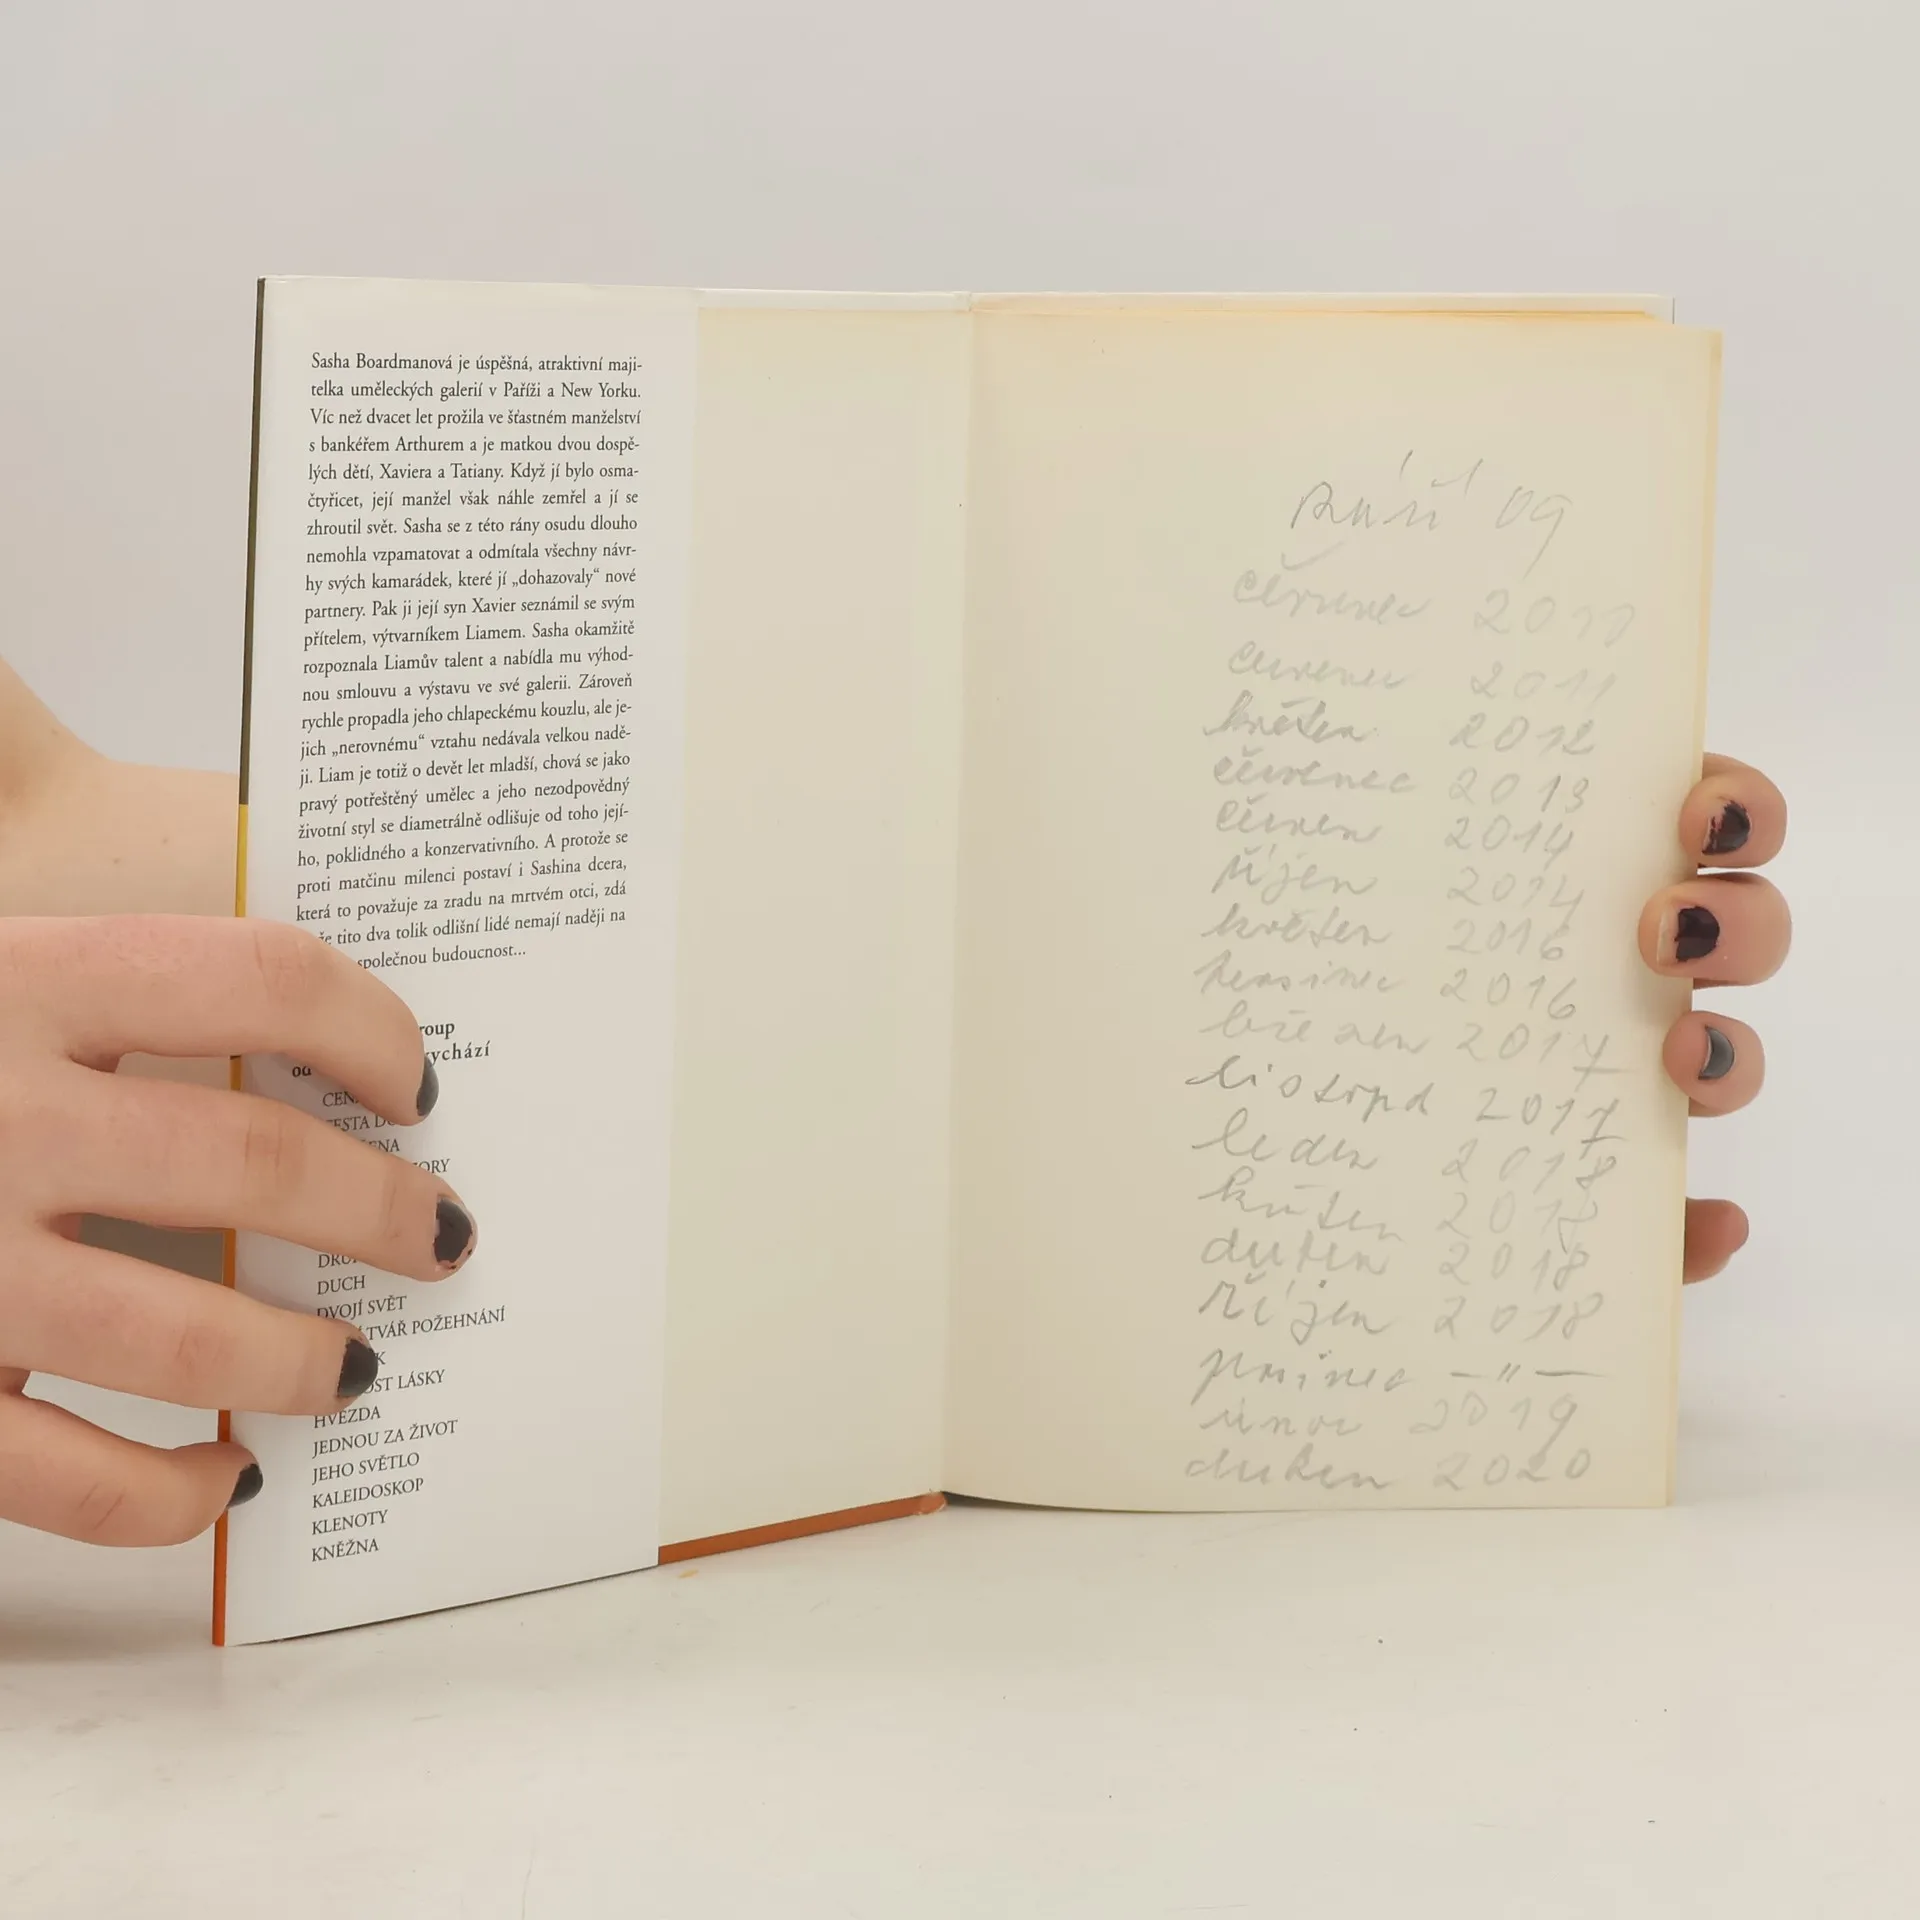 Sasha Boardmanová je úspěšná, atraktivní maji-
telka uměleckých galerií v Paříži a New Yorku.
Víc než dvacet let prožila ve šťastném manželství
s bankéřem Arthurem a je matkou dvou dospě-
lých dětí, Xaviera a Tatiany. Když jí bylo osma-
čtyřicet, její manžel však náhle zemřel a jí se
zhroutil svět. Sasha se z této rány osudu dlouho
nemohla vzpamatovat a odmítala všechny návr-
hy svých kamarádek, které jí „dohazovaly“ nové
partnery. Pak ji její syn Xavier seznámil se svým
přítelem, výtvarníkem Liamem. Sasha okamžitě
rozpoznala Liamův talent a nabídla mu výhod-
nou smlouvu a výstavu ve své galerii. Zároveň
rychle propadla jeho chlapeckému kouzlu, ale je-
jich „nerovnému“ vztahu nedávala velkou nadě-
ji. Liam je totiž o devět let mladší, chová se jako
pravý potřeštěný umělec a jeho nezodpovědný
životní styl se diametrálně odlišuje od toho její-
ho, poklidného a konzervativního. A protože se
proti matčinu milenci postaví i Sashina dcera,
která to považuje za zradu na mrtvém otci, zdá
tito dva tolik odlišní lidé nemají naději na
společnou budoucnost...
roup
ychází
od
CEN
ESTA DO
ENA
ORY
DRU
DUCH
DVOJÍ SVĚT
TVÁŘ POŽEHNÁNÍ
K
OST LÁSKY
HVĚZDA
JEDNOU ZA ŽIVOT
JEHO SVĚTLO
KALEIDOSKOP
KLENOTY
KNĚŽNA
září 09
červenec 2011
červenec 2011
květen 2012
červenec 2013
červen 2014
říjen 2014
květen 2016
prosinec 2016
březen 2017
listopad 2017
leden 2018
květen 2018
duben 2018
říjen 2018
prosinec —"—
únor 2019
duben 2020